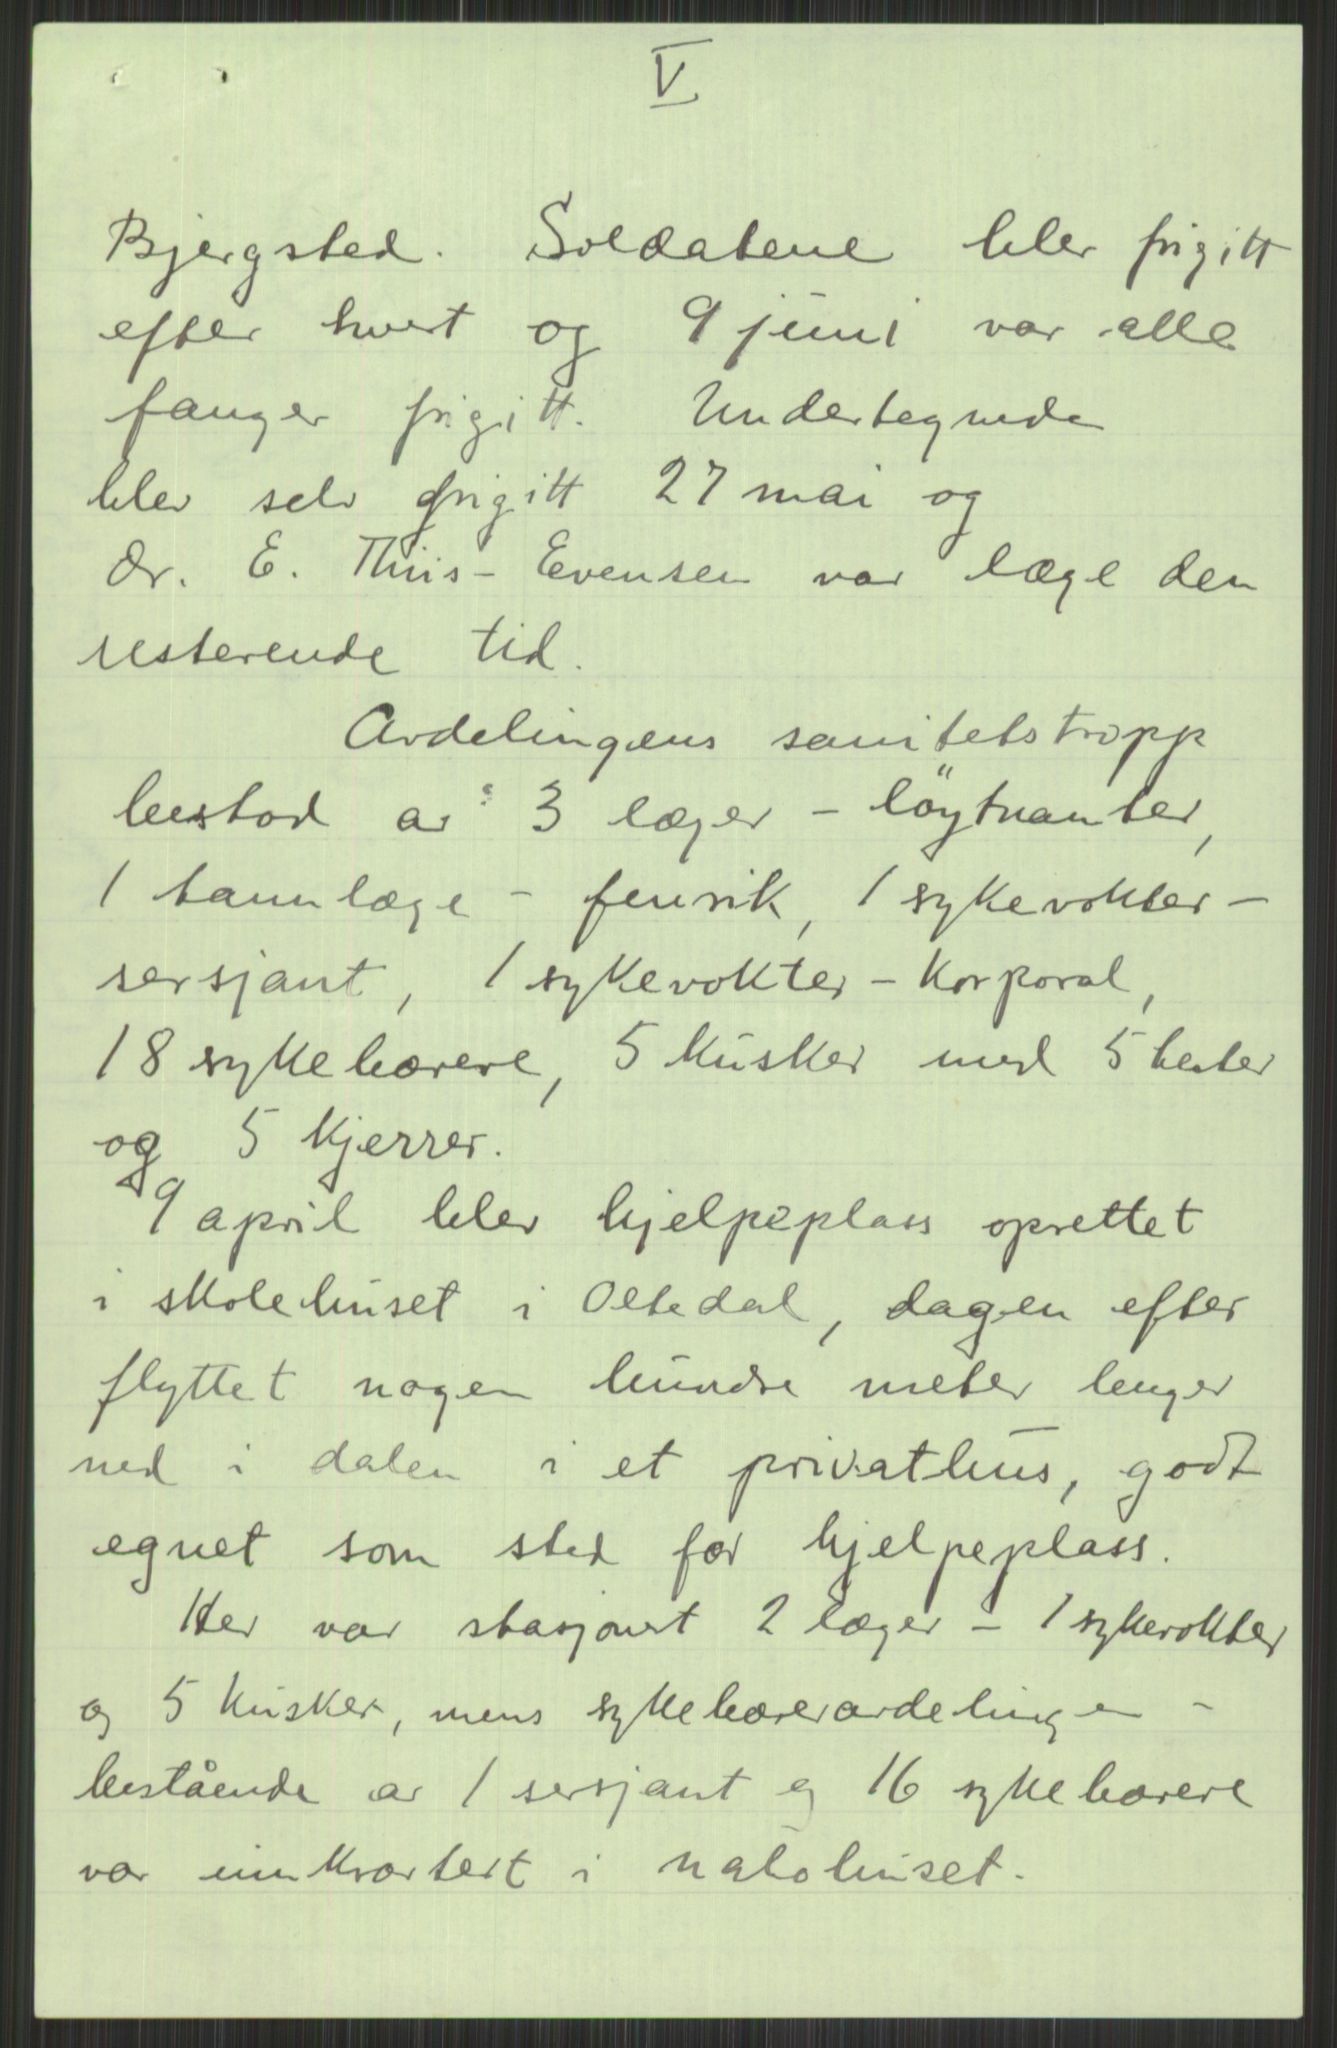 V
Bjergsted. Soldatene blev frigitt
efter hvert og 9 juni var alle
fanger frigitt. Undertegnede
blev selv frigitt 27 mai og
dr. E. Thiis-Evensen var læge den
resterende tid.
Avdelingens sanitetstropp
bestod av 3 læger - löytnanter,
1 tannlæge - fenrik, 1 sykevokter -
sersjant, 1 sykevokter - korporal,
18 sykebærere, 5 kusker med 5 hester
og 5 kjerrer.
9 april blev hjelpeplass oprettet
i skolehuset i Oltedal, dagen efter
flyttet nogen hundre meter lenger
ned i dalen i et privathus, godt
egnet som sted for hjelpeplass.
Her var stasjonert 2 læger - 1 sykevokter
og 5 kusker, mens sykebæreravdelingen -
bestående av 1 sersjant og 16 sykebærere
var innkvartert i nabohuset.